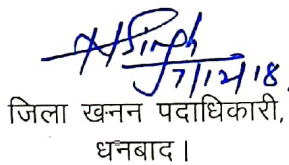 A Singh
7/12/18.
जिला खनन पदाधिकारी,
धनबाद।